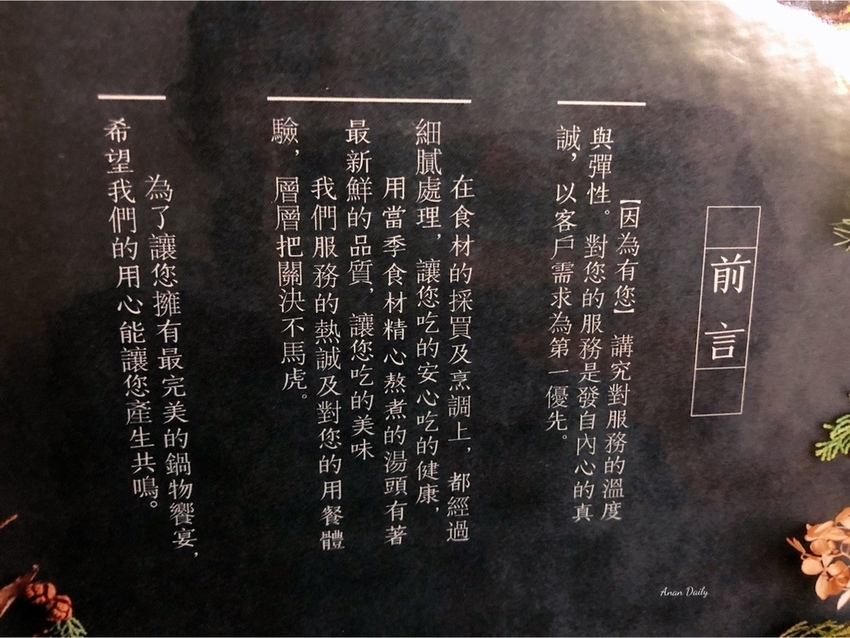 前言
【因為有您】 講究對服務的溫度
與彈性。對您的服務是發自內心的真
誠，以客戶需求為第一優先。
在食材的採買及烹調上，都經過
細膩處理，讓您吃的安心吃的健康，
用當季食材精心熬煮的湯頭有著
最新鮮的品質，讓您吃的美味
我們服務的熱誠及對您的用餐體
驗，層層把關決不馬虎。
為了讓您擁有最完美的鍋物饗宴，
希望我們的用心能讓您產生共鳴。
Anan Daily